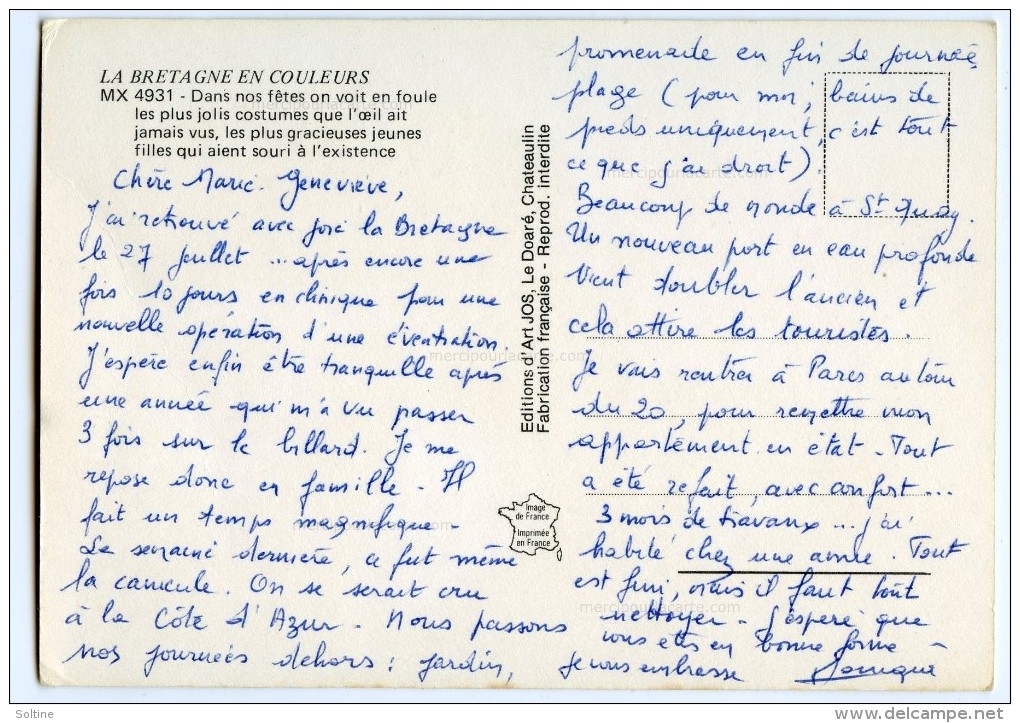 LA BRETAGNE EN COULEURS
MX 4931 - Dans nos fêtes on voit en foule
les plus jolis costumes que l'œil ait
jamais vus, les plus gracieuses jeunes
filles qui aient souri à l'existence
Chère Marie-Geneviève,
J'ai retrouvé avec joie la Bretagne
le 27 juillet ... après encore une
fois 10 jours en clinique pour une
nouvelle opération d'une éventration.
J'espère enfin être tranquille après
une année qui m'a vu passer
3 fois sur le billard. Je me
repose donc en famille - Il
fait un temps magnifique -
La semaine dernière, ce fut même
la canicule. On se serait cru
à la Côte d'Azur - Nous passons
nos journées dehors : jardin,
Editions d'Art JOS, Le Doaré, Chateaulin
Fabrication française - Reprod. interdite
Image
de France
Imprimée
en France
promenade en fin de journée,
plage (pour moi, bains de
pieds uniquement, c'est tout
ce que j'ai droit).
Beaucoup de monde à St Quay.
Un nouveau port en eau profonde
vient doubler l'ancien et
cela attire les touristes.
Je vais rentrer à Paris autour
du 20, pour remettre mon
appartement en état - Tout
a été refait, avec confort ...
3 mois de travaux ... j'ai
habité chez une amie. Tout
est fini, mais il faut tout
nettoyer - J'espère que
vous êtes en bonne forme -
Je vous embrasse
mercipourlacarte.com
mercipourlacarte.com
mercipourlacarte.com
mercipourlacarte.com
Soltine
http://www.delcampe.net